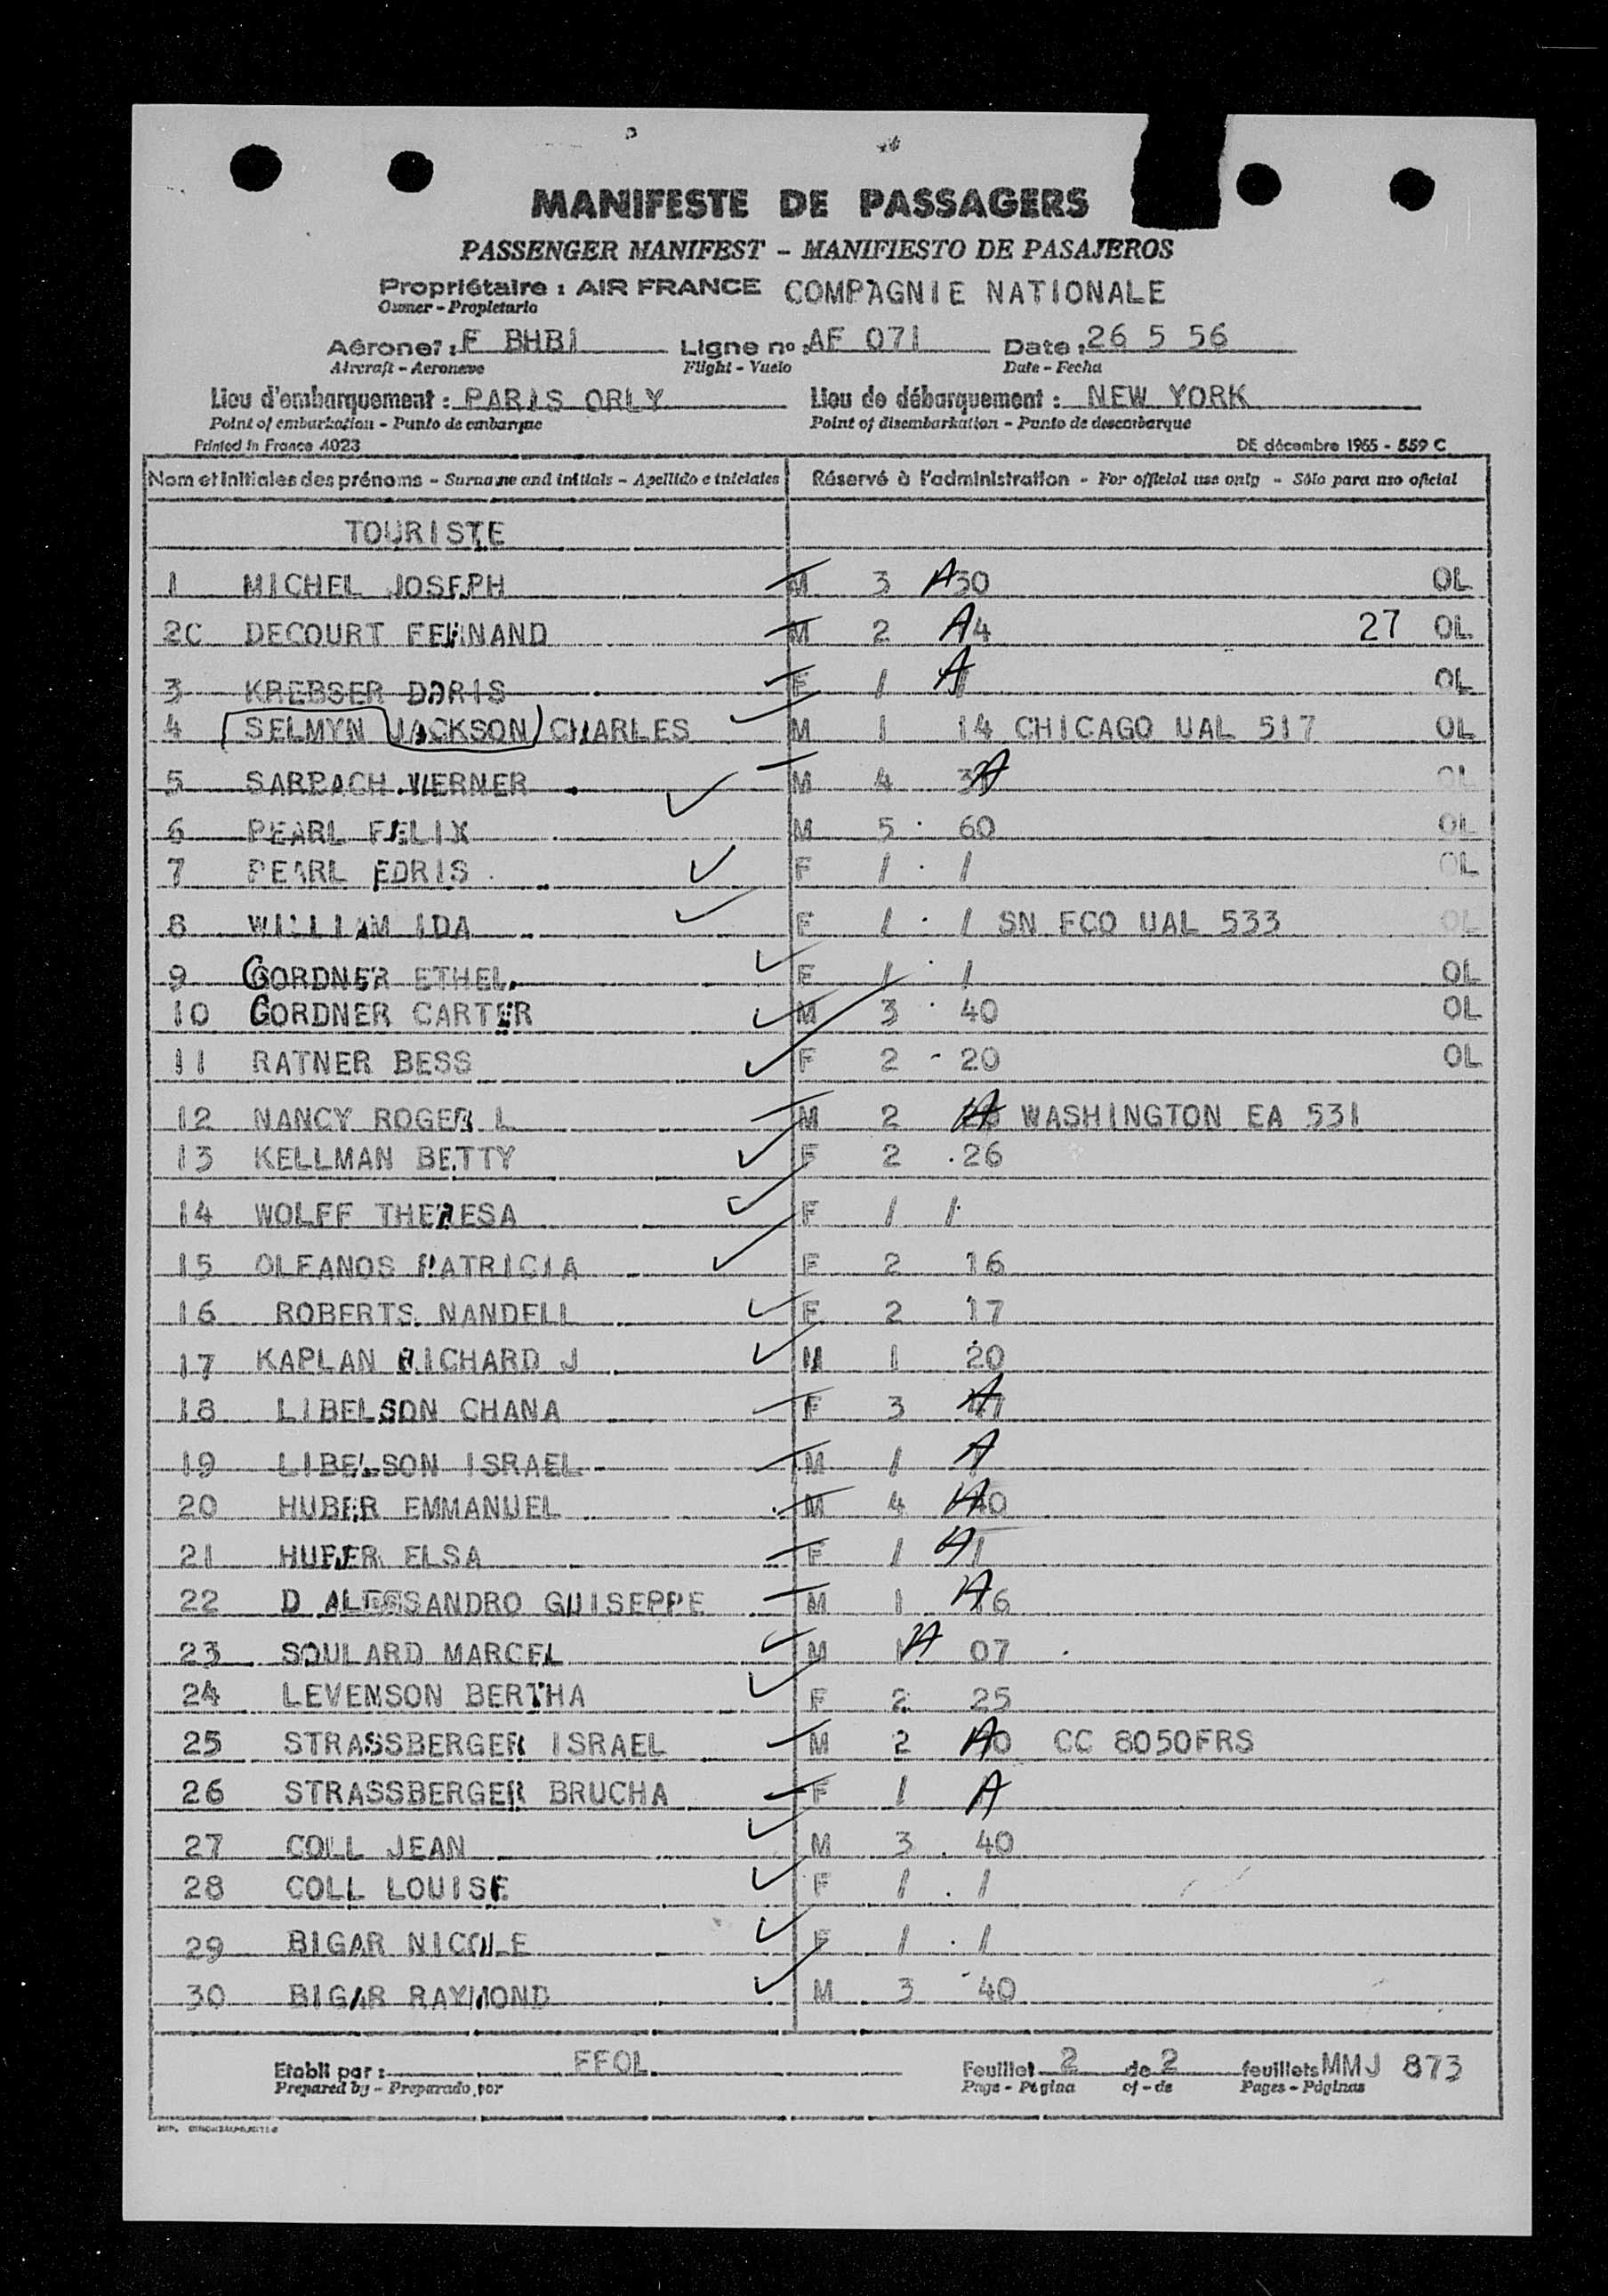 MANIFESTE DE PASSAGERS
PASSENGER MANIFEST - MANIFIESTO DE PASAJEROS
Propriétaire : AIR FRANCE COMPAGNIE NATIONALE
Owner - Propietario
Aéronef : F BHBI Ligne no : AF 071 Date : 26 5 56
Aircraft - Aeronave Flight - Vuelo Date - Fecha
Lieu d'embarquement : PARIS ORLY Lieu de débarquement : NEW YORK
Point of embarkation - Punto de embarque Point of disembarkation - Punto de desembarque
Printed in France 4023 DE décembre 1955 - 559 C
Nom et initiales des prénoms - Surname and initials - Apellido e iniciales Réservé à l'administration - For official use only - Sólo para uso oficial
TOURISTE
1 MICHEL JOSEPH M 3 A30 OL
2C DECOURT FERNAND M 2 A4 27 OL
3 KREBSER DORIS F 1 A OL
4 SELMYN JACKSON CHARLES M 1 14 CHICAGO UAL 517 OL
5 SARBACH WERNER M 4 3A OL
6 PEARL FELIX M 5 60 OL
7 PEARL EDRIS F 1 1 OL
8 WILLIAM IDA F 1 1 SN FCO UAL 533 OL
9 GORDNER ETHEL F 1 1 OL
10 GORDNER CARTER M 3 40 OL
11 RATNER BESS F 2 - 20 OL
12 NANCY ROGER L M 2 A WASHINGTON EA 531
13 KELLMAN BETTY F 2 26
14 WOLFF THERESA F 1 1
15 OLEANOS PATRICIA F 2 16
16 ROBERTS NANDELL F 2 17
17 KAPLAN RICHARD J M 1 20
18 LIBELSON CHANA F 3 A7
19 LIBELSON ISRAEL M 1 A
20 HUBER EMMANUEL M 4 A0
21 HUBER ELSA F 1 A1
22 D ALESSANDRO GUISEPPE M 1 A6
23 SOULARD MARCEL M 1 A 07
24 LEVENSON BERTHA F 2 25
25 STRASSBERGER ISRAEL M 2 A0 CC 8050FRS
26 STRASSBERGER BRUCHA F 1 A
27 COLL JEAN M 3 40
28 COLL LOUISE F 1 1
29 BIGAR NICOLE F 1 1
30 BIGAR RAYMOND M 3 40
Etabli par : FFOL Feuillet 2 de 2 feuillets MMJ 873
Prepared by - Preparado por Page - Página of - de Pages - Páginas